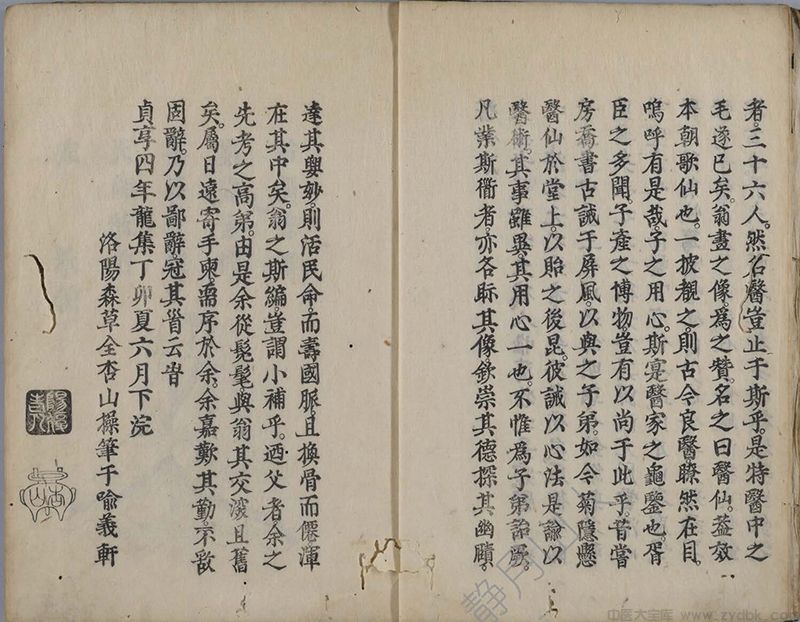 者三十六人。然名醫豈止于斯乎。是特醫中之
毛遂已矣。翁畫之像。為之贊。名之曰醫仙。蓋效
本朝歌仙也。一披覩之。則古今良醫瞭然在目。
嗚呼有是哉。子之用心。斯寔醫家之龜鑒也。胥
臣之多聞。子產之博物。豈有以尚于此乎。昔嘗
房喬書古誡于屏風。以與之子弟。如今菊隱懸
醫仙於堂上。以貽之後昆。彼誡以心法。是諭以
醫術。其事雖異。其用心一也。不惟為子弟詒厥。
凡業斯術者。亦各眎其像。欽崇其德。探其幽賾。
達其要妙。則活民命。而壽國脈。且換骨而僊。渾
在其中矣。翁之斯編。豈謂小補乎。迺父者余之
先考之高弟。由是余從髧髦與翁其交淺且舊
矣。屬日遠寄手柬。需序於余。余嘉歎其勤。不敢
固辭。乃以鄙辭。冠其首云旹
貞享四年龍集丁卯夏六月下浣
洛陽森草全杏山操筆于喻義軒
靜
中医大宝库 www.zydbk.com